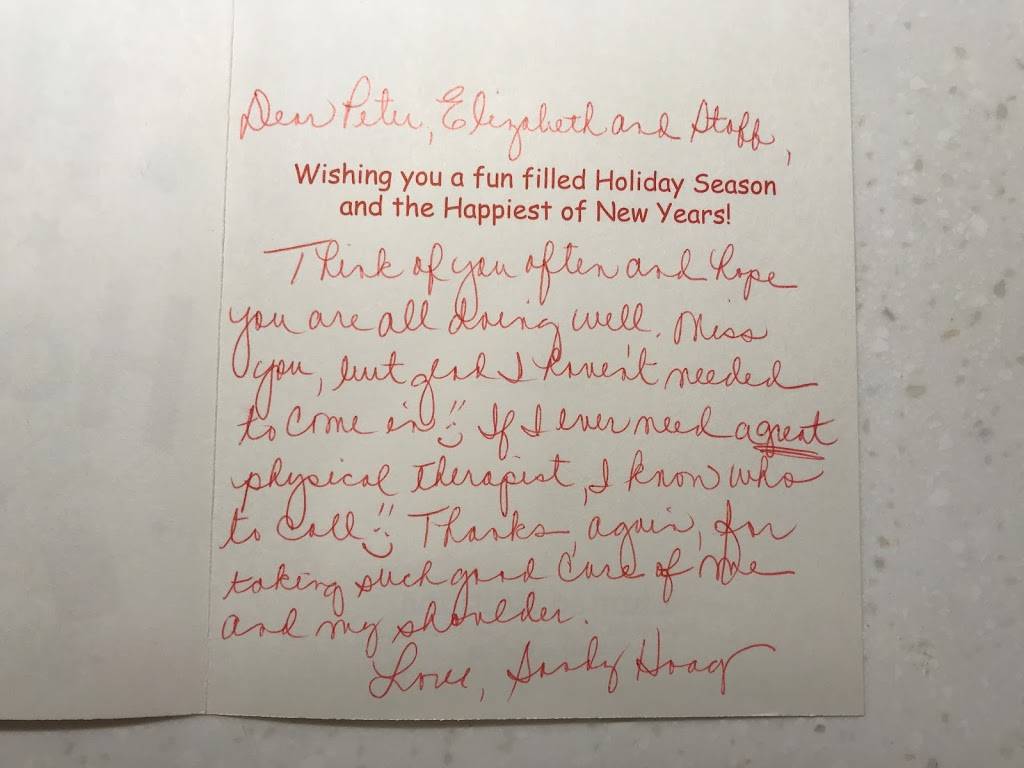 Dear Peter, Elizabeth and Staff,
Wishing you a fun filled Holiday Season
and the Happiest of New Years!
Think of you often and hope
you are all doing well. Miss
you, but glad I haven't needed
to come in! If I ever need a great
physical therapist, I know who
to call! Thanks, again, for
taking such good care of me
and my shoulder.
Love, Sandy Hoag